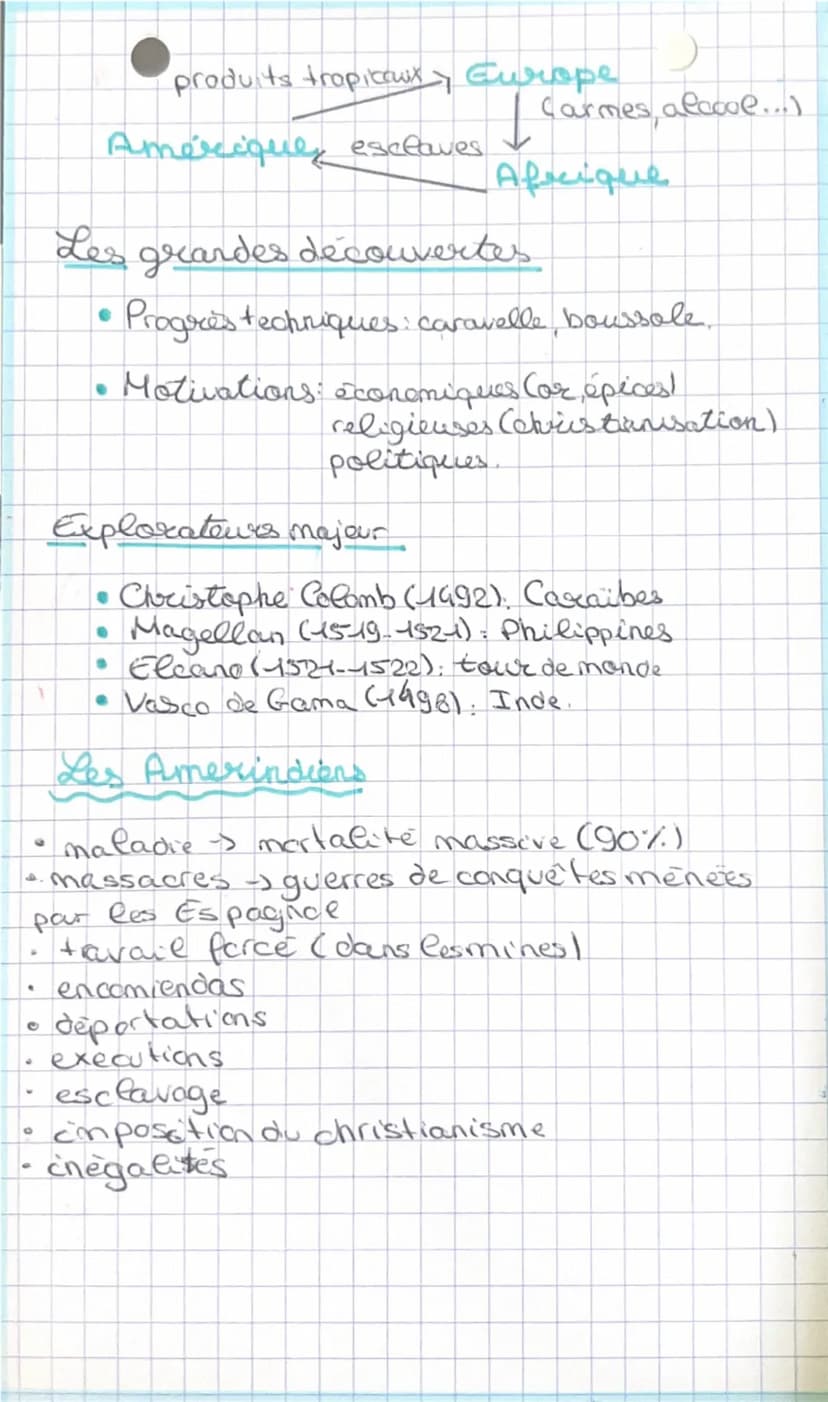 produits tropicaux → Europe
(armes, alcool...)
Amérique esclaves
Afrique
Les grandes découvertes
• Progrès techniques : caravelle, boussole.
• Motivations : économiques (or, épices)
religieuses (christianisation)
politiques.
Explorateurs majeur
• Christophe Colomb (1492). Caraïbes
• Magellan (1519-1521) : Philippines
• Elcano (1521-1522) : tour de monde
• Vasco de Gama (1498) : Inde.
Les Amerindiens
• maladie → mortalité massive (90%)
• massacres → guerres de conquêtes menées
par les Espagnol
• travail forcé (dans les mines)
• encomiendas
• déportations
• executions
• esclavage
• imposition du christianisme
• inégalités